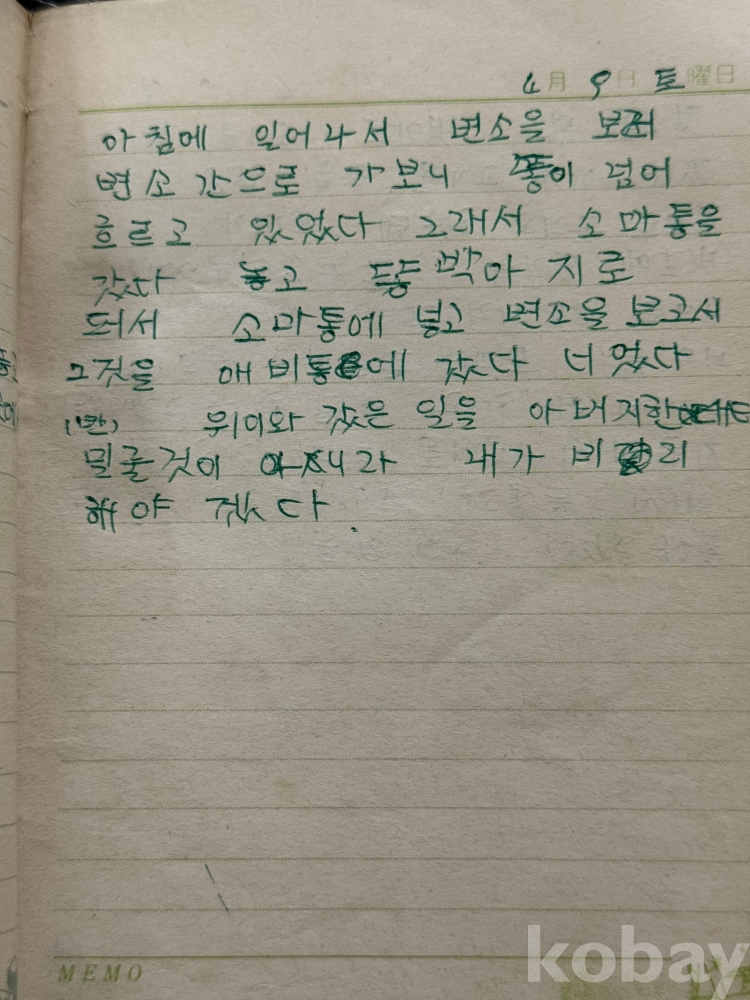 4月 9日 토曜日
아침에 일어나서 변소을 보러
변소간으로 가보니 똥이 넘어
흐르고 있었다 그래서 소마통을
갔다 놓고 똥박아지로
떠서 소마통에 넣고 변소을 보고서
그것을 애비통에 갔다 너었다
(반) 위이와 갔은 일을 아버지한테
밀룰것이 아니라 내가 비리
해야 겠다.
MEMO
kobay